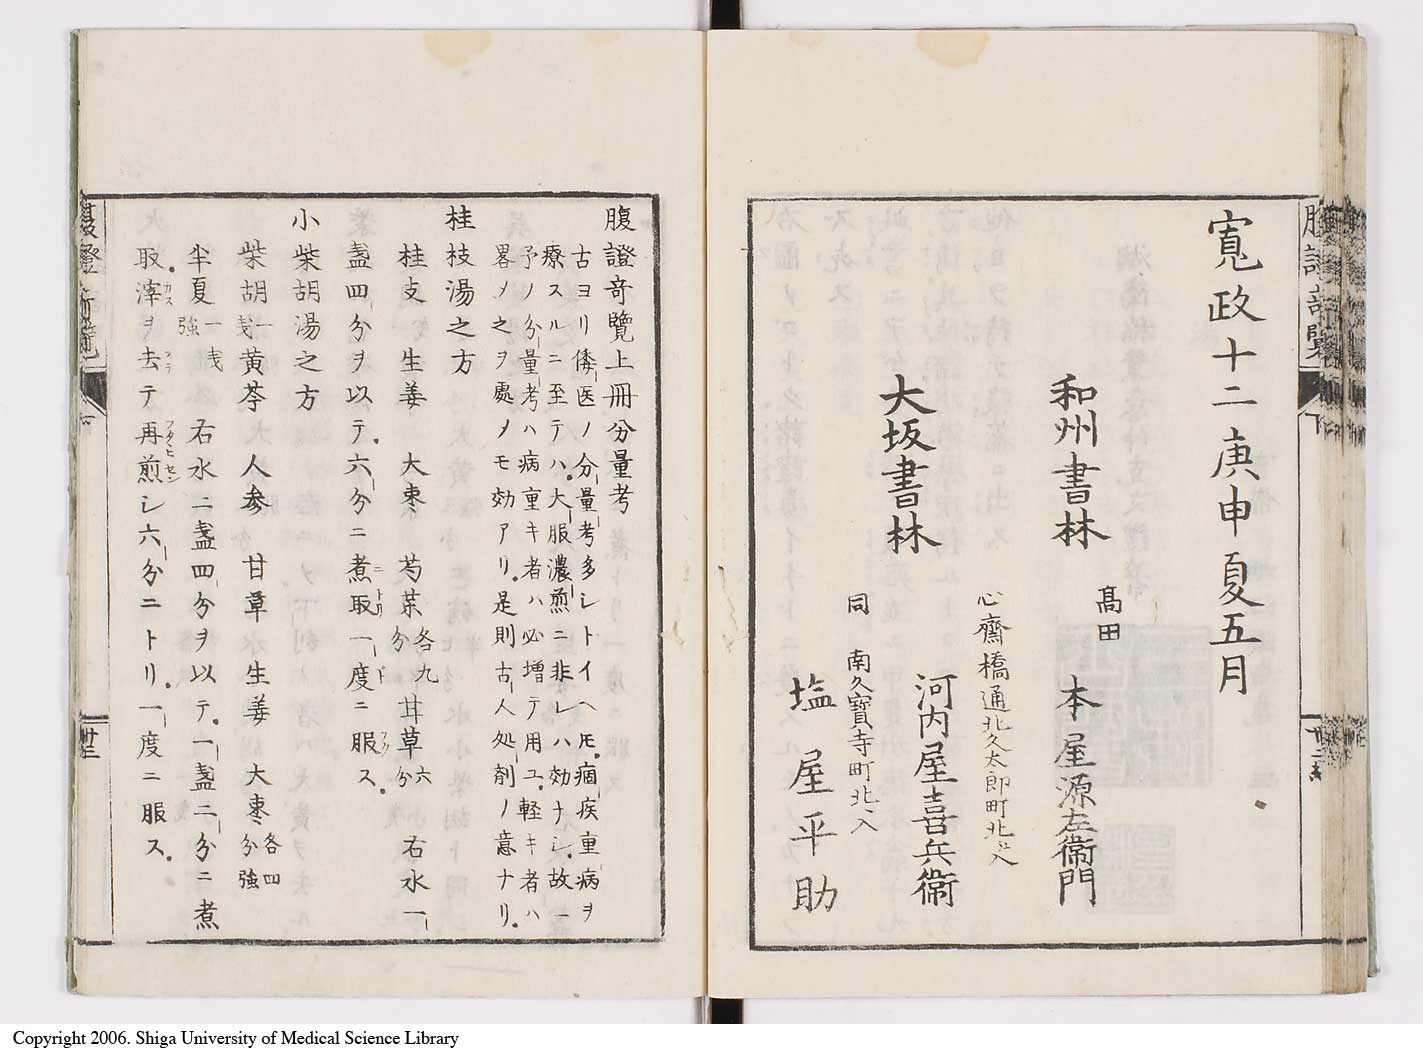 寛政十二庚申夏五月
和州書林
髙田
本屋源左衛門
大坂書林
心齋橋通北久太郎町北江入
河内屋喜兵衞
同 南久寶寺町北入
塩屋平助
腹證奇覽上冊分量考
古ヨリ倭医ノ分量考多シトイヘ𪜈痼疾重病ヲ
療スルニ至テハ大服濃煎ニ非レハ効ナシ故ニ
予ノ分量考ハ病重キ者ハ必増テ用ユ軽キ者ハ
畧メ之ヲ處メモ効アリ是則古人処剤ノ意ナリ
桂枝湯之方
桂支 生姜 大枣 芍薬各九分 甘草六分 右水一
盞四分ヲ以テ六分ニ煮取一度ニ服ス
小柴胡湯之方
柴胡一戔 黄芩 人参 甘草 生姜 大枣各四分強
半夏一戔強 右水二盞四分ヲ以テ一盞二分ニ煮
取滓ヲ去テ再煎シ六分ニトリ一度ニ服ス